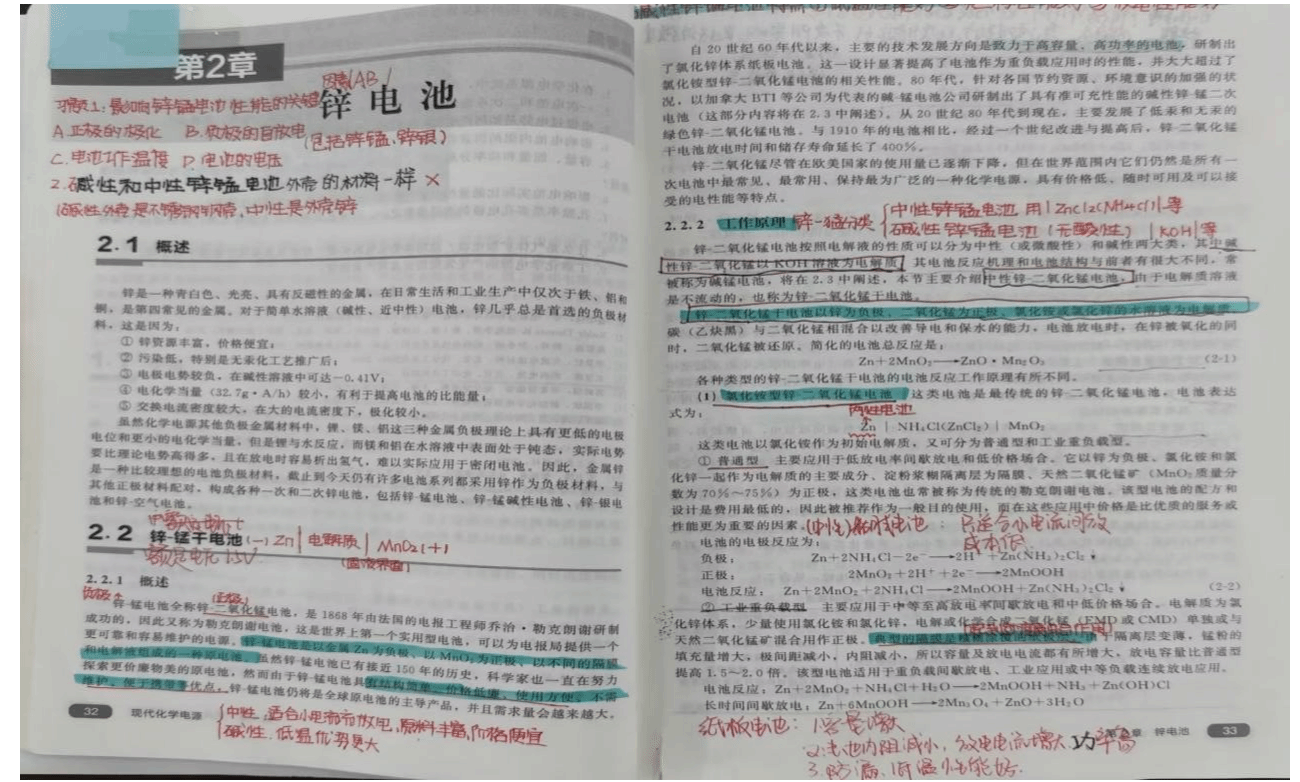 第2章
锌电池
因素(AB)
习题1:影响锌锰电池性能的关键
A.正极的极化 B.负极的自放电
(包括锌锰、锌银)
C.电池工作温度 D.电池的电压
2.碱性和中性锌锰电池外壳的材料一样 ×
(碱性外壳是不锈钢钢壳,中性是外壳锌
2.1 概述
锌是一种青白色、光亮、具有反磁性的金属,在日常生活和工业生产中仅次于铁、铝和
铜,是第四常见的金属。对于简单水溶液(碱性、近中性)电池,锌几乎总是首选的负极材
料,这是因为:
① 锌资源丰富,价格便宜;
② 污染低,特别是无汞化工艺推广后;
③ 电极电势较负,在碱性溶液中可达-0.41V;
④ 电化学当量(32.7g·A/h)较小,有利于提高电池的比能量;
⑤ 交换电流密度较大,在大的电流密度下,极化较小。
虽然化学电源其他负极金属材料中,锂、镁、铝这三种金属负极理论上具有更低的电极
电位和更小的电化学当量,但是锂与水反应,而镁和铝在水溶液中表面处于钝态,实际电势
要比理论电势高得多,且在放电时容易析出氢气,难以实际应用于密闭电池。因此,金属锌
是一种比较理想的电池负极材料,截止到今天仍有许多电池系列都采用锌作为负极材料,与
其他正极材料配对,构成各种一次和二次锌电池,包括锌-锰电池、锌-锰碱性电池、锌-银电
池和锌-空气电池。
2.2 锌-锰干电池 (-) Zn | 电解质 | MnO2(+)
额定电压1.5V
2.2.1 概述
负极 (正极)
锌-锰电池全称锌-二氧化锰电池,是1868年由法国的电报工程师乔治·勒克朗谢研制
成功的,因此又称为勒克朗谢电池,这是世界上第一个实用型电池,可以为电报局提供一个
更可靠和容易维护的电源。锌-锰电池是以金属Zn为负极,以MnO₂为正极,以不同的隔膜
和电解液组成的一种原电池。虽然锌-锰电池已有接近150年的历史,科学家也一直在努力
探索更价廉物美的原电池,然而由于锌-锰电池具有结构简单、价格低廉、使用方便、不需
维护、便于携带等优点,锌-锰电池仍将是全球原电池的主导产品,并且需求量会越来越大。
32 现代化学电源
中性:适合小电流放电,原料丰富,价格便宜
碱性:低温优势更大
自20世纪60年代以来,主要的技术发展方向是致力于高容量、高功率的电池,研制出
了氯化锌体系纸板电池。这一设计显著提高了电池作为重负载应用时的性能,并大大超过了
氯化铵型锌-二氧化锰电池的相关性能。80年代,针对各国节约资源、环境意识的加强的状
况,以加拿大BTI等公司为代表的碱-锰电池公司研制出了具有准可充性能的碱性锌-锰二次
电池(这部分内容将在2.3中阐述)。从20世纪80年代到现在,主要发展了低汞和无汞的
绿色锌-二氧化锰电池。与1910年的电池相比,经过一个世纪改进与提高后,锌-二氧化锰
干电池放电时间和储存寿命延长了400%。
锌-二氧化锰尽管在欧美国家的使用量已逐渐下降,但在世界范围内它们仍然是所有一
次电池中最常见、最常用、保持最为广泛的一种化学电源,具有价格低、随时可用及可以接
受的电性能等特点。
2.2.2 工作原理 锌-锰分类 中性锌锰电池 用|ZnCl2(NH4Cl)|等
碱性锌锰电池(无酸性) |KOH|等
锌-二氧化锰电池按照电解液的性质可以分为中性(或微酸性)和碱性两大类,其中碱
性锌-二氧化锰以KOH溶液为电解质,其电池反应机理和电池结构与前者有很大不同,常
被称为碱锰电池,将在2.3中阐述,本节主要介绍中性锌-二氧化锰电池,由于电解质溶液
是不流动的,也称为锌-二氧化锰干电池。
锌-二氧化锰干电池以锌为负极,二氧化锰为正极,氯化铵或氯化锌的水溶液为电解质,
碳(乙炔黑)与二氧化锰相混合以改善导电和保水的能力,电池放电时,在锌被氧化的同
时,二氧化锰被还原。简化的电池总反应是:
Zn+2MnO₂⟶ZnO·Mn₂O₃ (2-1)
各种类型的锌-二氧化锰干电池的电池反应工作原理有所不同。
(1) 氯化铵型锌-二氧化锰电池 这类电池是最传统的锌-二氧化锰电池,电池表达
式为:
Zn | NH₄Cl(ZnCl₂) | MnO₂
这类电池以氯化铵作为初始电解质,又可分为普通型和工业重负载型。
① 普通型 主要应用于低放电率间歇放电和低价格场合。它以锌为负极、氯化铵和氯
化锌一起作为电解质的主要成分、淀粉浆糊隔离层为隔膜、天然二氧化锰矿(MnO₂质量分
数为70%～75%)为正极,这类电池也常被称为传统的勒克朗谢电池。该型电池的配方和
设计是费用最低的,因此被推荐作为一般目的使用,而在这些应用中价格是比优质的服务或
性能更为重要的因素。
只适合小电流间放
成本低
电池的电极反应为:
负极: Zn+2NH₄Cl-2e⁻⟶2H⁺+Zn(NH₃)₂Cl₂↓
正极: 2MnO₂+2H⁺+2e⁻⟶2MnOOH
电池反应: Zn+2MnO₂+2NH₄Cl⟶2MnOOH+Zn(NH₃)₂Cl₂↓ (2-2)
② 工业重负载型 主要应用于中等至高放电率间歇放电和中低价格场合。电解质为氯
化锌体系,少量使用氯化铵和氯化锌,电解或化学合成二氧化锰(EMD或CMD)单独或与
天然二氧化锰矿混合用作正极。典型的隔膜是 隔离层变薄,锰粉的
填充量增大,极间距减小,内阻减小,所以容量及放电电流都有所增大,放电容量比普通型
提高1.5～2.0倍。该型电池适用于重负载间歇放电、工业应用或中等负载连续放电应用。
电池反应:Zn+2MnO₂+NH₄Cl+H₂O⟶2MnOOH+NH₃+Zn(OH)Cl
长时间间歇放电:Zn+6MnOOH⟶2Mn₃O₄+ZnO+3H₂O
纸板电池: 1.容量增大
2.电池内阻减小,放电电流增大,功率高
3.防漏、低温性能好.
章 锌电池 33